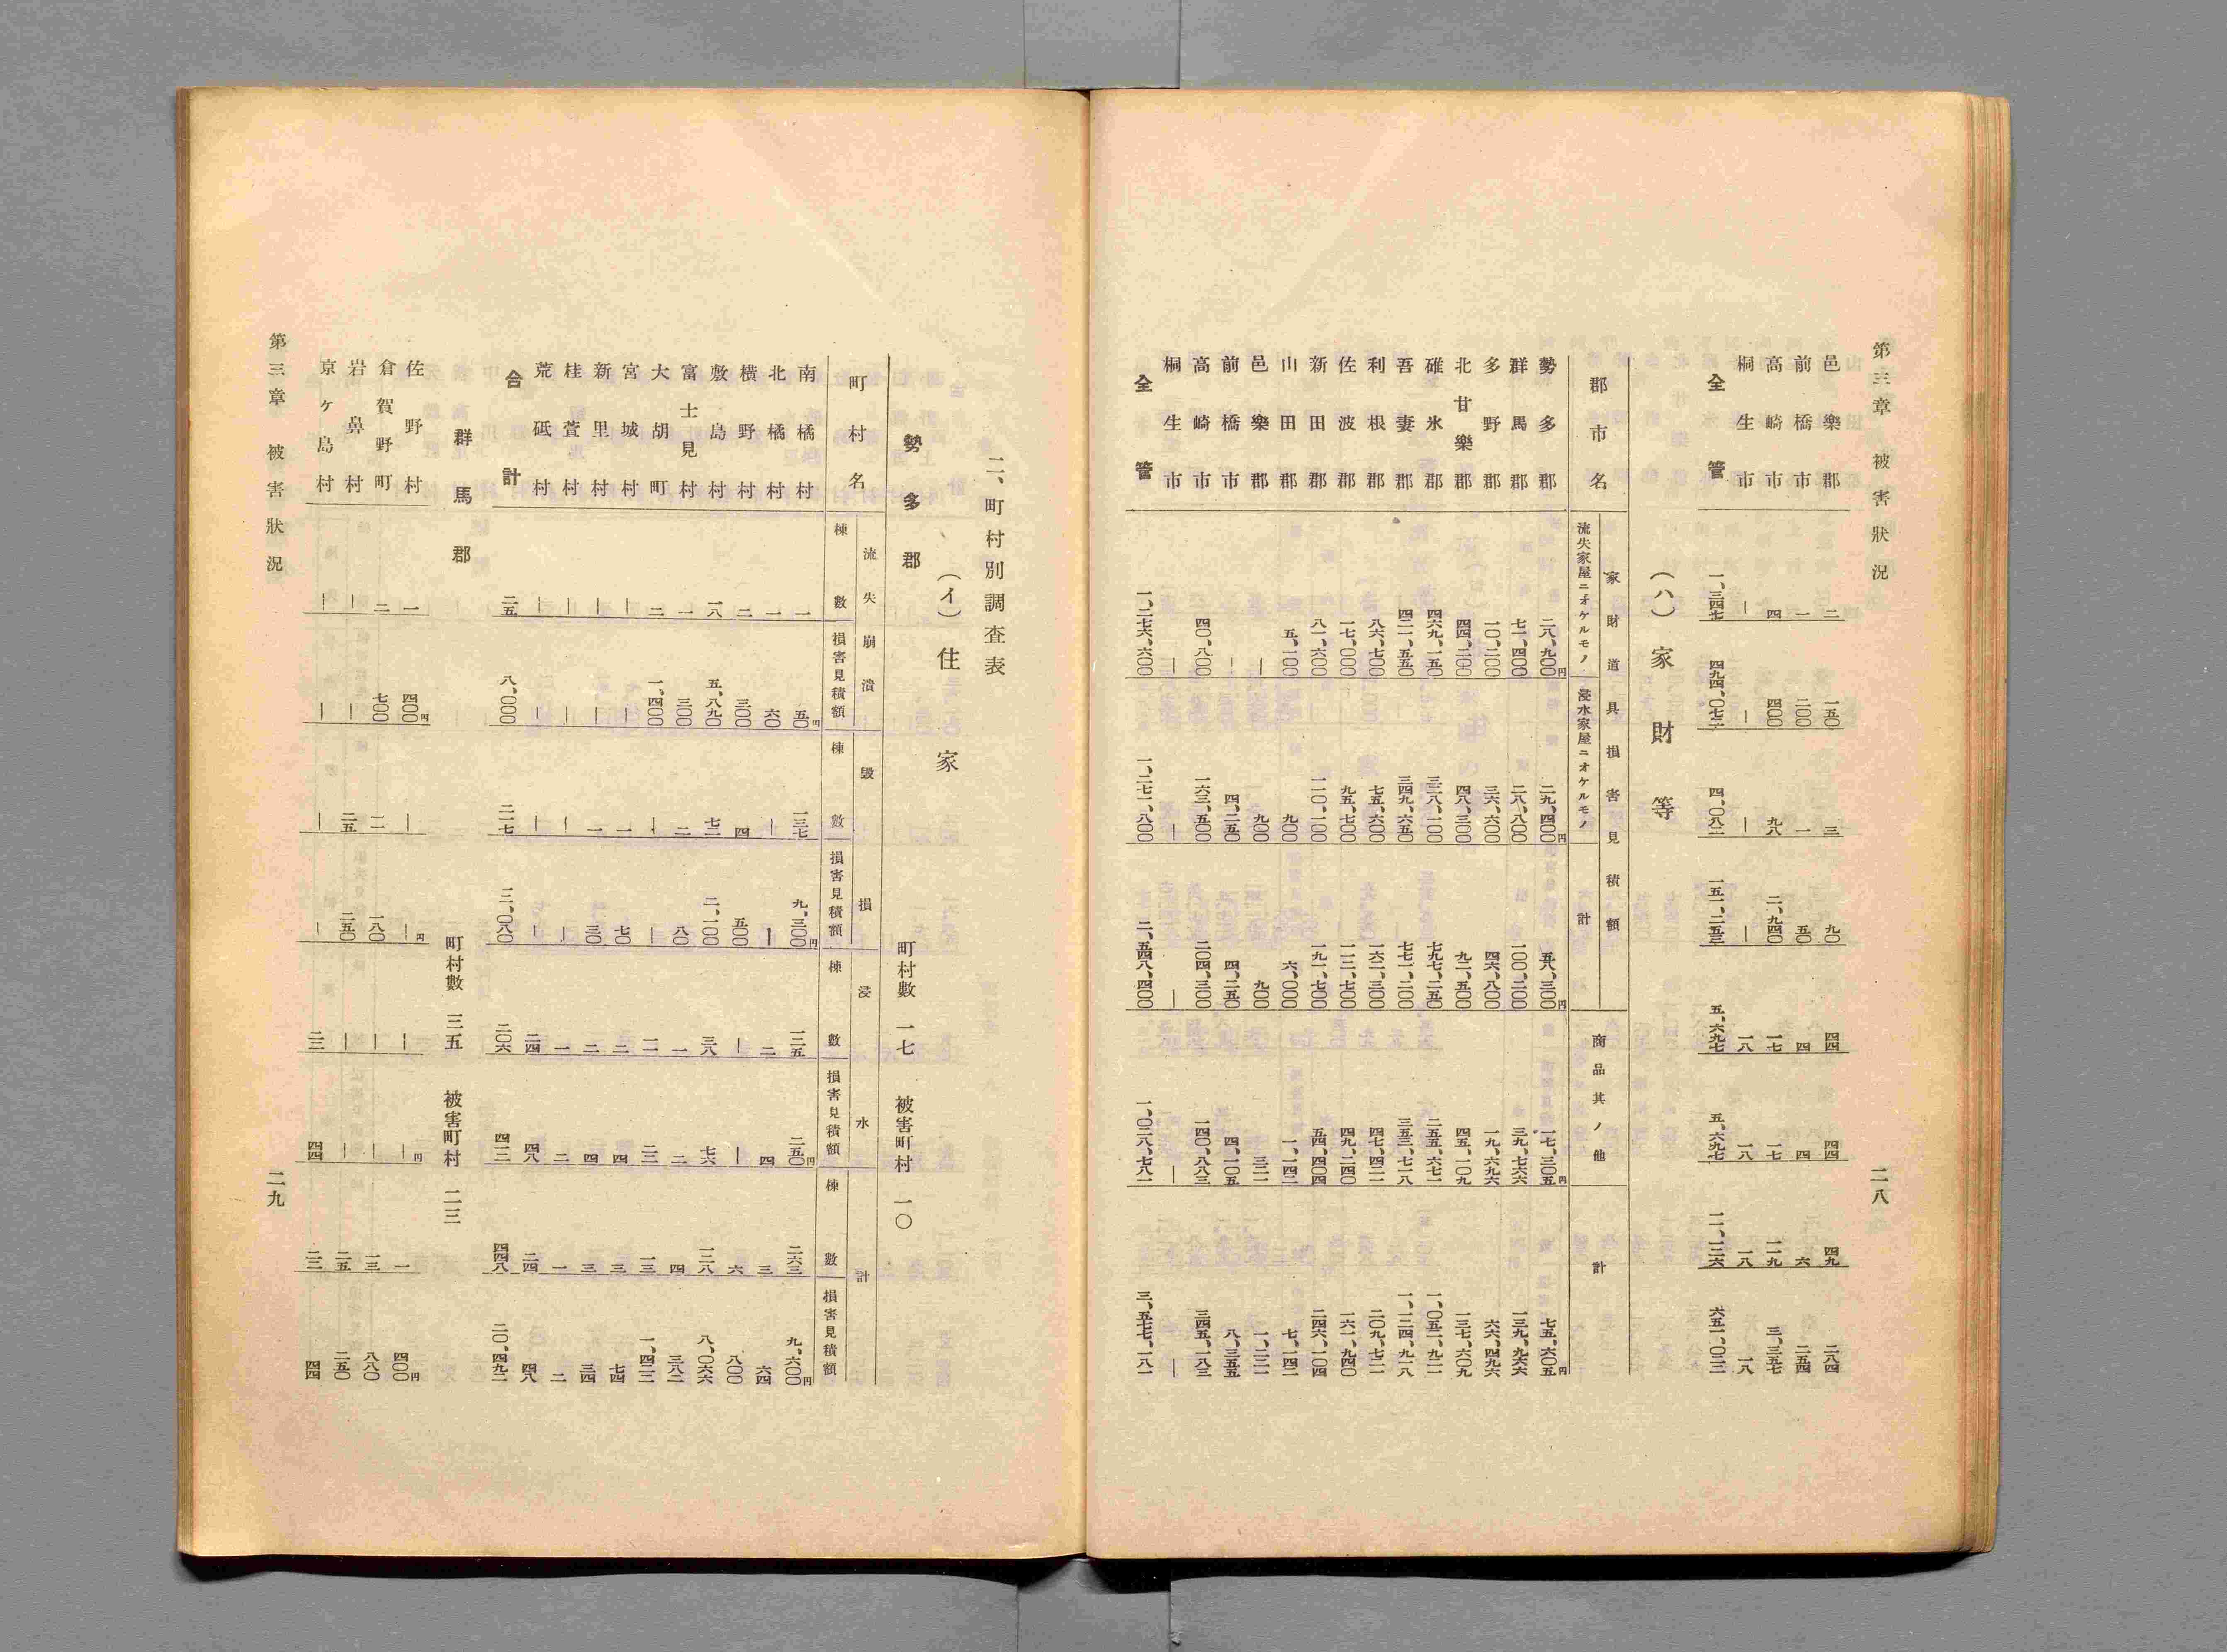 第三章 被害狀況 二八
邑樂郡 二 一五〇 三 九〇 四四 四四 四九 二八四
前橋市 一 二〇〇 一 五〇 四 四 六 二五四
高崎市 四 四〇〇 九八 二、九四〇 一七 一七 一一九 三、三五七
桐生市 ― ― ― ― 一八 一八 一八 一八
全管 一、三四七 四九四、〇七二 四、〇八二 一五一、二五三 五、六九七 五、六九七 一一、一二六 六五一、〇二二
（ハ）家財等
郡市名 家財道具損害見積額 商品其ノ他 計
流失家屋ニオケルモノ 浸水家屋ニオケルモノ 計
勢多郡 二八、九〇〇円 二九、四〇〇円 五八、三〇〇円 一七、三〇五円 七五、六〇五円
群馬郡 七一、四〇〇 二八、八〇〇 一〇〇、二〇〇 三九、七六六 一三九、九六六
多野郡 一〇、二〇〇 三六、六〇〇 四六、八〇〇 一九、六九六 六六、四九六
北甘樂郡 四四、二〇〇 四八、三〇〇 九二、五〇〇 四五、一〇九 一三七、六〇九
碓氷郡 四六九、一五〇 三二八、一〇〇 七九七、二五〇 二五五、六七一 一、〇五二、九二一
吾妻郡 四二一、五五〇 三四九、六五〇 七七一、二〇〇 三五三、七一八 一、一二四、九一八
利根郡 八六、七〇〇 七五、六〇〇 一六二、三〇〇 四七、四二一 二〇九、七二一
佐波郡 一七、〇〇〇 九五、七〇〇 一一二、七〇〇 四九、二四〇 一六一、九四〇
新田郡 八一、六〇〇 一一〇、一〇〇 一九一、七〇〇 五四、四〇四 二四六、一〇四
山田郡 五、一〇〇 九〇〇 六、〇〇〇 一、一四二 七、一四二
邑樂郡 ― 九〇〇 九〇〇 三二一 一、二二一
前橋市 ― 四、二五〇 四、二五〇 四、一〇五 八、三五五
高崎市 四〇、八〇〇 一六三、五〇〇 二〇四、三〇〇 一四〇、八八三 三四五、一八三
桐生市 ― ― ― ― ―
全管 一、二七六、六〇〇 一、二七一、八〇〇 二、五四八、四〇〇 一、〇二八、七八一 三、五七七、一八一
二、町村別調査表
（イ）住家
勢多郡 町村數 一七 被害町村 一〇
町村名 流失崩潰 毀損 浸水 計
棟數 損害見積額 棟數 損害見積額 棟數 損害見積額 棟數 損害見積額
南橘村 一 五〇円 一三七 九、三〇〇円 一二五 二五〇円 二六三 九、六〇〇円
北橘村 一 六〇 ― ― 二 四 三 六四
横野村 二 三〇〇 四 五〇〇 ― ― 六 八〇〇
敷島村 一八 五、八九〇 七二 二、一〇〇 三八 七六 一二八 八、〇六六
富士見村 一 三〇〇 二 八〇 一 二 四 三八二
大胡町 二 一、四〇〇 ― ― 一一 二二 一三 一、四二二
宮城村 ― ― 一 七〇 二 四 三 七四
新里村 ― ― 一 三〇 二 四 三 三四
桂萱村 ― ― ― ― 一 二 一 二
荒砥村 ― ― ― ― 二四 四八 二四 四八
合計 二五 八、〇〇〇 二一七 一二、〇八〇 二〇六 四一二 四四八 二〇、四九二
群馬郡 町村數 三五 被害町村 二三
佐野村 一 四〇〇円 ― ―円 ― ―円 一 四〇〇円
倉賀野町 二 七〇〇 一一 一八〇 ― ― 一三 八八〇
岩鼻村 ― ― 二五 二五〇 ― ― 二五 二五〇
京ケ島村 ― ― ― ― 二二 四四 二二 四四
第三章 被害狀況 二九